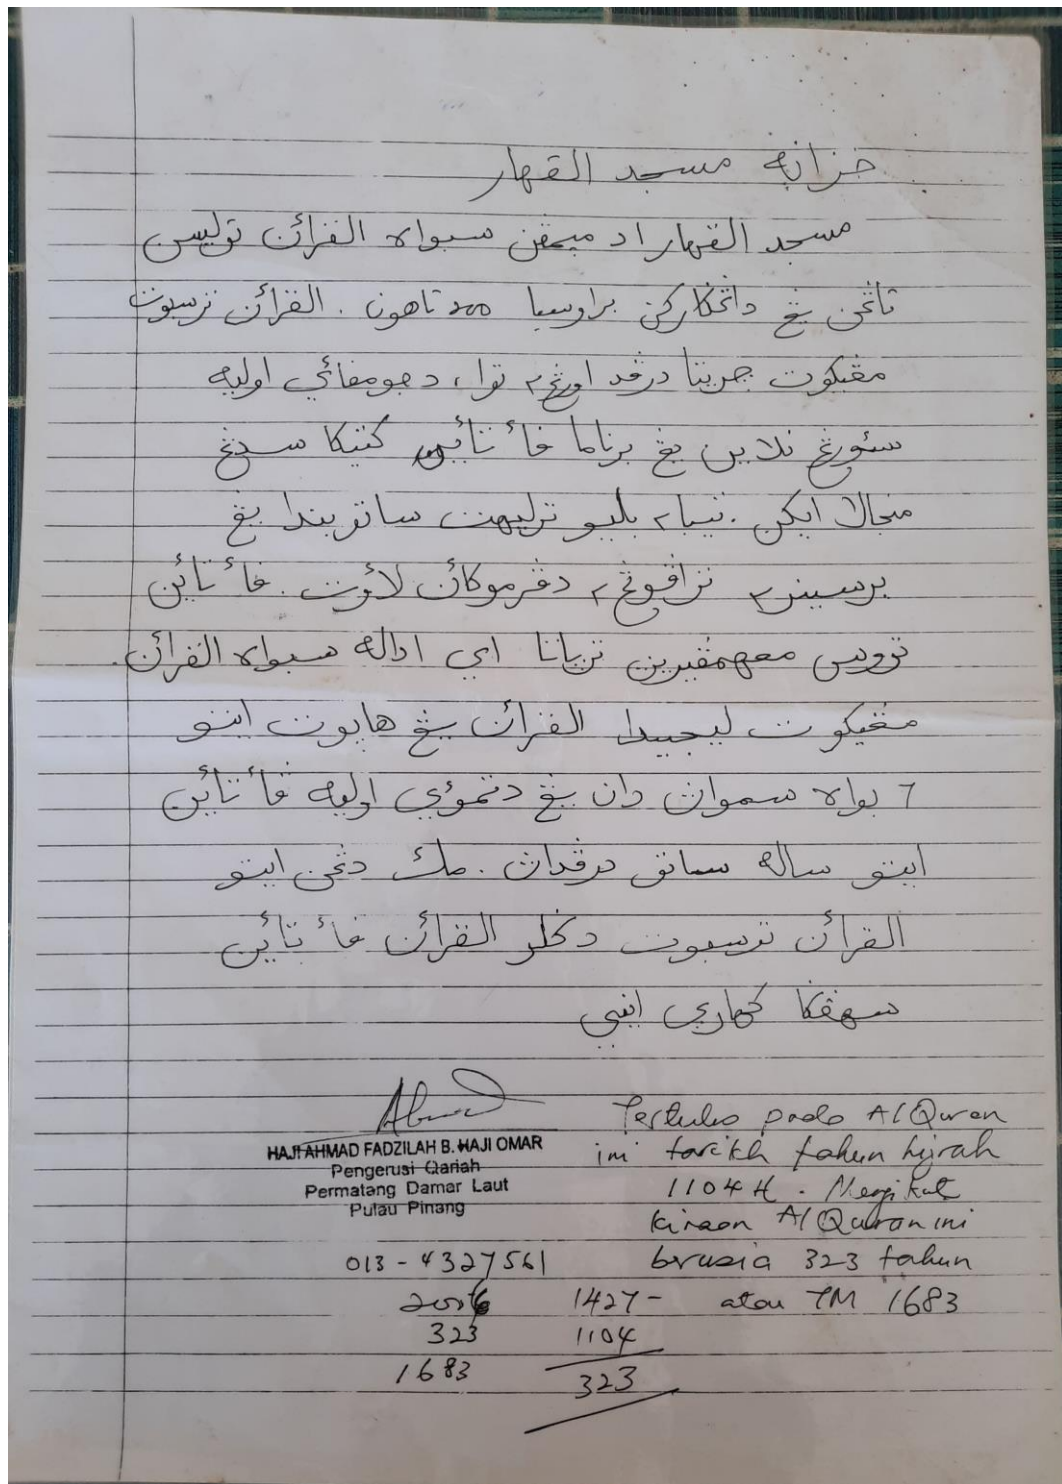 خزانه مسجد القهار
مسجد القهار اد ميمڤن سبواه القرائن توليسن
تاڠن يڠ داڠكاركن براوسيا 200 تاهون . القرائن ترسبوت
مڠيكوت چريتا درڤد اورڠ٢ توا، دجومڤائي اوليه
سئورڠ نلاين يڠ برناما ڤأ تائين كتيكا سدڠ
منجالا ايكن . تيبا٢ بليو ترليهت ساتو بندا يڠ
برسينر٢ تراڤوڠ٢ دڤرموكائن لاؤت . ڤأ تائين
تروس مڠهمڤيرين ترياتا اي اداله سبواه القرائن.
مڠيكوت القرائن يڠ هاڽوت ايتو
7 بواه سمواڽ دان يڠ دتموئي اوليه ڤأ تائين
ايتو ساله ساتو درڤداڽ . مك دڠن ايتو
القرأن ترسبوت دكلر القرائن ڤأ تائين
سهڠڬا كهاري ايني
HAJI AHMAD FADZILAH B. HAJI OMAR
Pengerusi Qariah
Permatang Damar Laut
Pulau Pinang
013 - 4327561
2006
323
1683
Tertulis pada Al Quran
ini tarikh tahun hijrah
1104 H . Mengikut
kiraan Al Quran ini
berusia 323 tahun
atau TM 1683
1427 -
1104
323